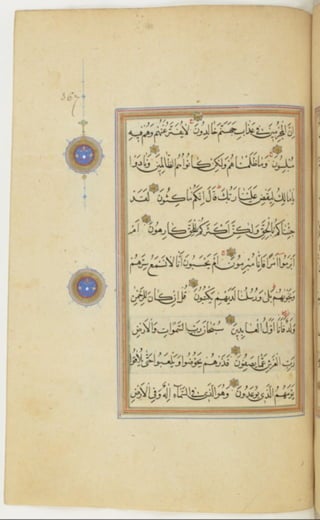 اِنَّ الْمُجْرِمِينَ فِي عَذَابِ جَهَنَّمَ خَالِدُونَ لَا يُفَتَّرُ عَنْهُمْ وَهُمْ فِيهِ
مُبْلِسُونَ وَمَا ظَلَمْنَاهُمْ وَلٰكِنْ كَانُوا هُمُ الظَّالِمِينَ وَنَادَوْا
يَا مَالِكُ لِيَقْضِ عَلَيْنَا رَبُّكَ قَالَ اِنَّكُمْ مَاكِثُونَ لَقَدْ
جِئْنَاكُمْ بِالْحَقِّ وَلٰكِنَّ اَكْثَرَكُمْ لِلْحَقِّ كَارِهُونَ اَمْ
اَبْرَمُوا اَمْرًا فَاِنَّا مُبْرِمُونَ اَمْ يَحْسَبُونَ اَنَّا لَا نَسْمَعُ سِرَّهُمْ
وَنَجْوٰيهُمْ بَلٰى وَرُسُلُنَا لَدَيْهِمْ يَكْتُبُونَ قُلْ اِنْ كَانَ لِلرَّحْمٰنِ
وَلَدٌ فَاَنَا اَوَّلُ الْعَابِدِينَ سُبْحَانَ رَبِّ السَّمٰوَاتِ وَالْاَرْضِ
رَبِّ الْعَرْشِ عَمَّا يَصِفُونَ فَذَرْهُمْ يَخُوضُوا وَيَلْعَبُوا حَتّٰى يُلَاقُوا
يَوْمَهُمُ الَّذِي يُوعَدُونَ وَهُوَ الَّذِي فِي السَّمَاءِ اِلٰهٌ وَفِي الْاَرْضِ